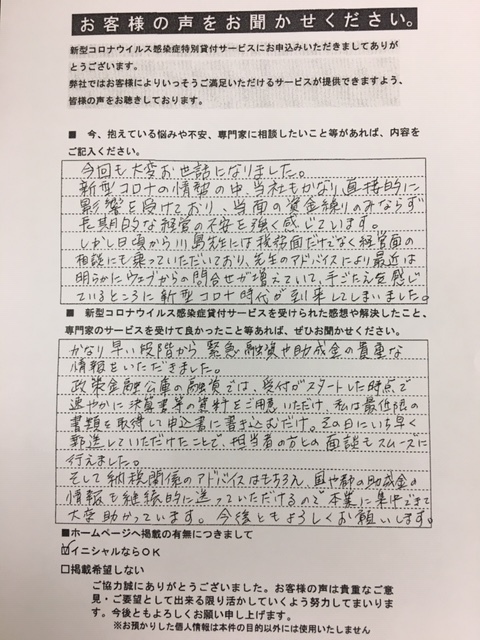 お客様の声をお聞かせください。
新型コロナウイルス感染症特別貸付サービスにお申込みいただきましてありが
とうございます。
弊社ではお客様によりいっそうご満足いただけるサービスが提供できますよう、
皆様の声をお聴きしております。
■ 今、抱えている悩みや不安、専門家に相談したいこと等があれば、内容を
ご記入ください。
今回も大変お世話になりました。
新型コロナの情勢の中、当社もかなり直接的に
影響を受けており、当面の資金繰りのみならず
長期的な経営の不安を強く感じています。
しかし日頃から川島先生には税務面だけでなく経営面の
相談にも乗っていただいており、先生のアドバイスにより最近は
明らかにウェブからの問合せが増えていて、手ごたえを感じ
ているところに新型コロナ時代が到来してしまいました。
■ 新型コロナウイルス感染症貸付サービスを受けられた感想や解決したこと、
専門家のサービスを受けて良かったこと等あれば、ぜひお聞かせください。
かなり早い段階から緊急融資や助成金の貴重な
情報をいただきました。
政策金融公庫の融資では、受付がスタートした時点で
速やかに決算書等の資料をご用意いただけ、私は最低限の
書類を取得して申込書に書き込むだけ。その日にいち早く
郵送していただけたことで、担当者の方との面談もスムーズに
行えました。
そして納税関係のアドバイスはもちろん、国や都の助成金の
情報も継続的に送っていただけるので本業に集中できて
大変助かっています。今後ともよろしくお願いします。
■ホームページへ掲載の有無につきまして
☑イニシャルならOK
□掲載希望しない
ご協力誠にありがとうございました。お客様の声は貴重なご意
見・ご要望として出来る限り活かしていくよう努力してまいりま
す。今後ともよろしくお願い申し上げます。
※お預かりした個人情報は本件の目的以外には使用いたしません